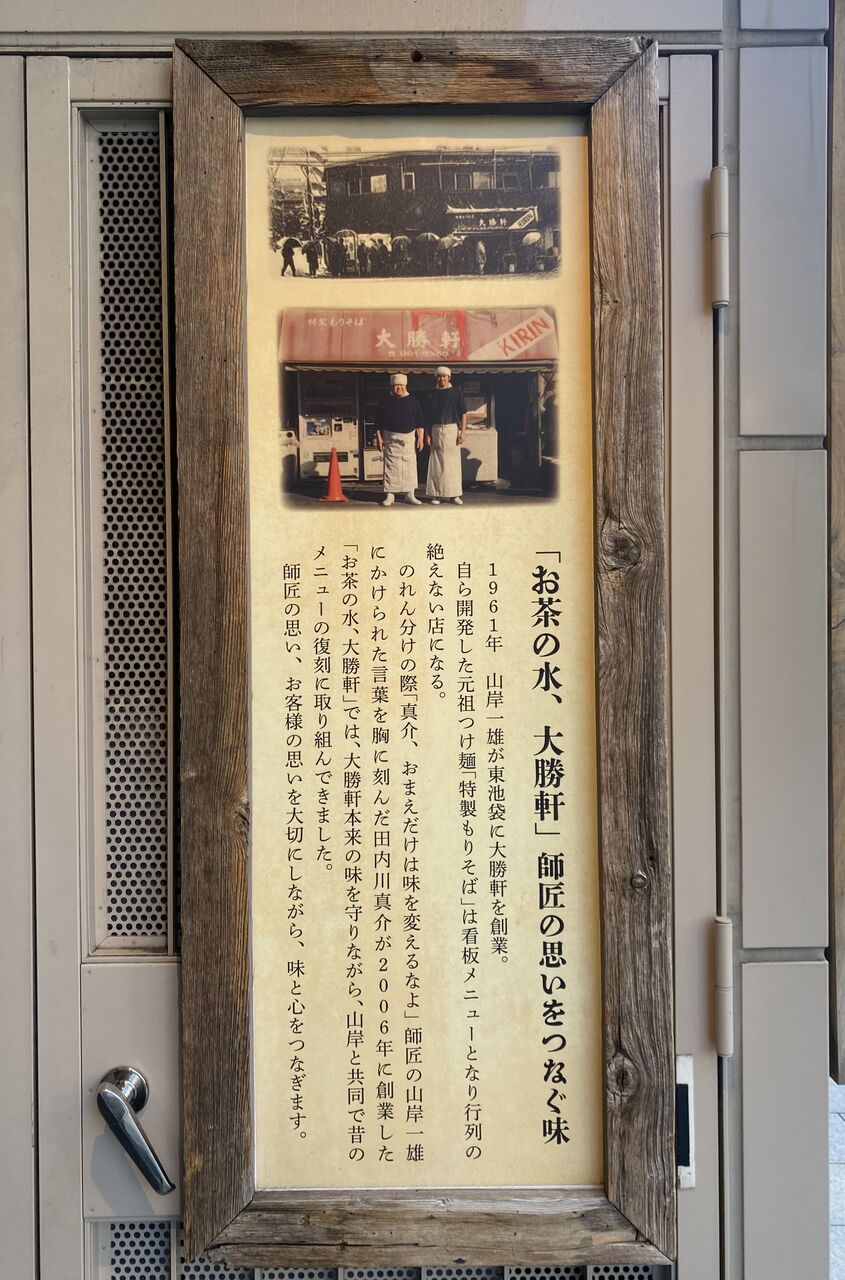 大勝軒
KIRIN
特製もりそば
大勝軒
KIRIN
「お茶の水、大勝軒」師匠の思いをつなぐ味
1961年　山岸一雄が東池袋に大勝軒を創業。
自ら開発した元祖つけ麺「特製もりそば」は看板メニューとなり行列の
絶えない店になる。
のれん分けの際「真介、おまえだけは味を変えるなよ」師匠の山岸一雄
にかけられた言葉を胸に刻んだ田内川真介が2006年に創業した
「お茶の水、大勝軒」では、大勝軒本来の味を守りながら、山岸と共同で昔の
メニューの復刻に取り組んできました。
師匠の思い、お客様の思いを大切にしながら、味と心をつなぎます。